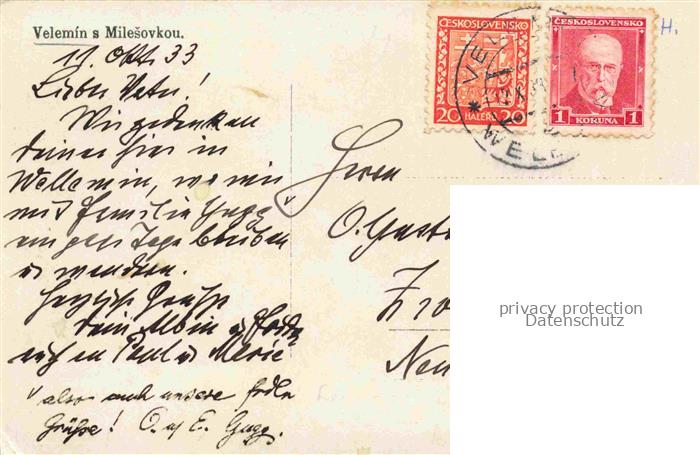 Velemín s Milešovkou.
11. Okt. 33
Lieber Vater!
Wir gedenken
deiner hier in
Wellemin, wo wir
mit Familie Gugg
einige Tage bleiben
u wandern.
Herzliche Grüße
Dein Albin u
auch an Paul u Marie
also auch unsere
Grüsse! O. u E. Gugg.
ČESKOSLOVENSKO
20 HALÉŘŮ 20
ČESKOSLOVENSKO
1 KORUNA 1
H.
Herrn
O. Gust
Neu
privacy protection
Datenschutz